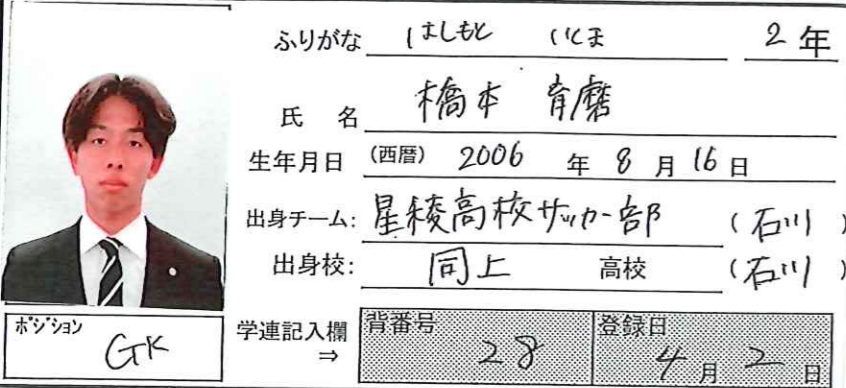 ふりがな はしもと いくま 2年
氏 名 橋本 育磨
生年月日 (西暦) 2006 年 8 月 16 日
出身チーム: 星稜高校サッカー部 (石川)
出身校: 同上 高校 (石川)
ポジション GK
学連記入欄 ⇒ 背番号 28 登録日 4月2日